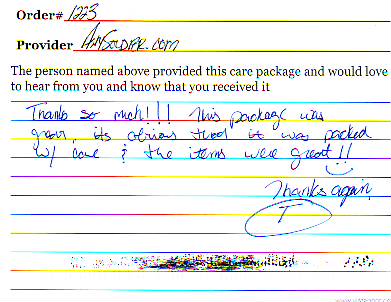 Order# 1223
Provider AnySoldier.com
The person named above provided this care package and would love
to hear from you and know that you received it
Thanks so much!!! This package was
great, its obvious that it was packed
w/ care & the items were great!!
Thanks again,
T